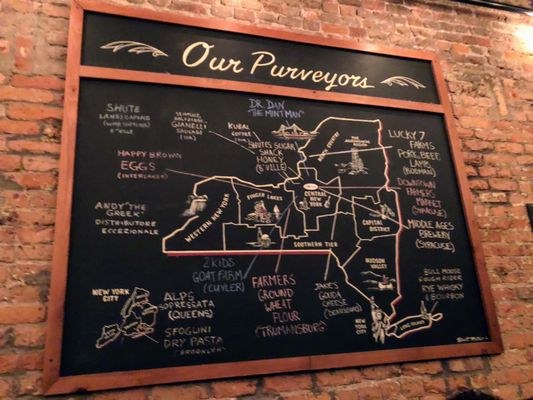 Our Purveyors
SHUTE
E'VILLE
GIANELLI
SAUSAGE
KUBAL
COFFEE
DR DAN
"THE MINT MAN"
SHUTES SUGAR
SHACK
HONEY
(E'VILLE)
LUCKY 7
FARMS
PORK, BEEF,
LAMB
(RODMAN)
HAPPY BROWN
EGGS
(INTERLAKEN)
DOWNTOWN
FARMERS
MARKET
(SYRACUSE)
ANDY "THE
GREEK"
DISTRIBUTORE
ECCEZIONALE
MIDDLE AGES
BREWERY
(SYRACUSE)
NORTH COUNTRY
THE ADIRONDACKS
FINGER LAKES
CENTRAL
NEW YORK
WESTERN NEW YORK
CAPITAL
DISTRICT
SOUTHERN TIER
HUDSON
VALLEY
2 KIDS
GOAT FARM
(CUYLER)
FARMERS
GROUND
WHEAT
FLOUR
(TRUMANSBURG)
JAKES
GOUDA
CHEESE
(DERUYTER)
BULL MOOSE
ROUGH RIDER
RYE WHISKY
& BOURBON
NEW YORK
CITY
ALPS
SOPRESSATA
(QUEENS)
SFOGLINI
DRY PASTA
(BROOKLYN)
NEW
YORK
CITY
LONG ISLAND